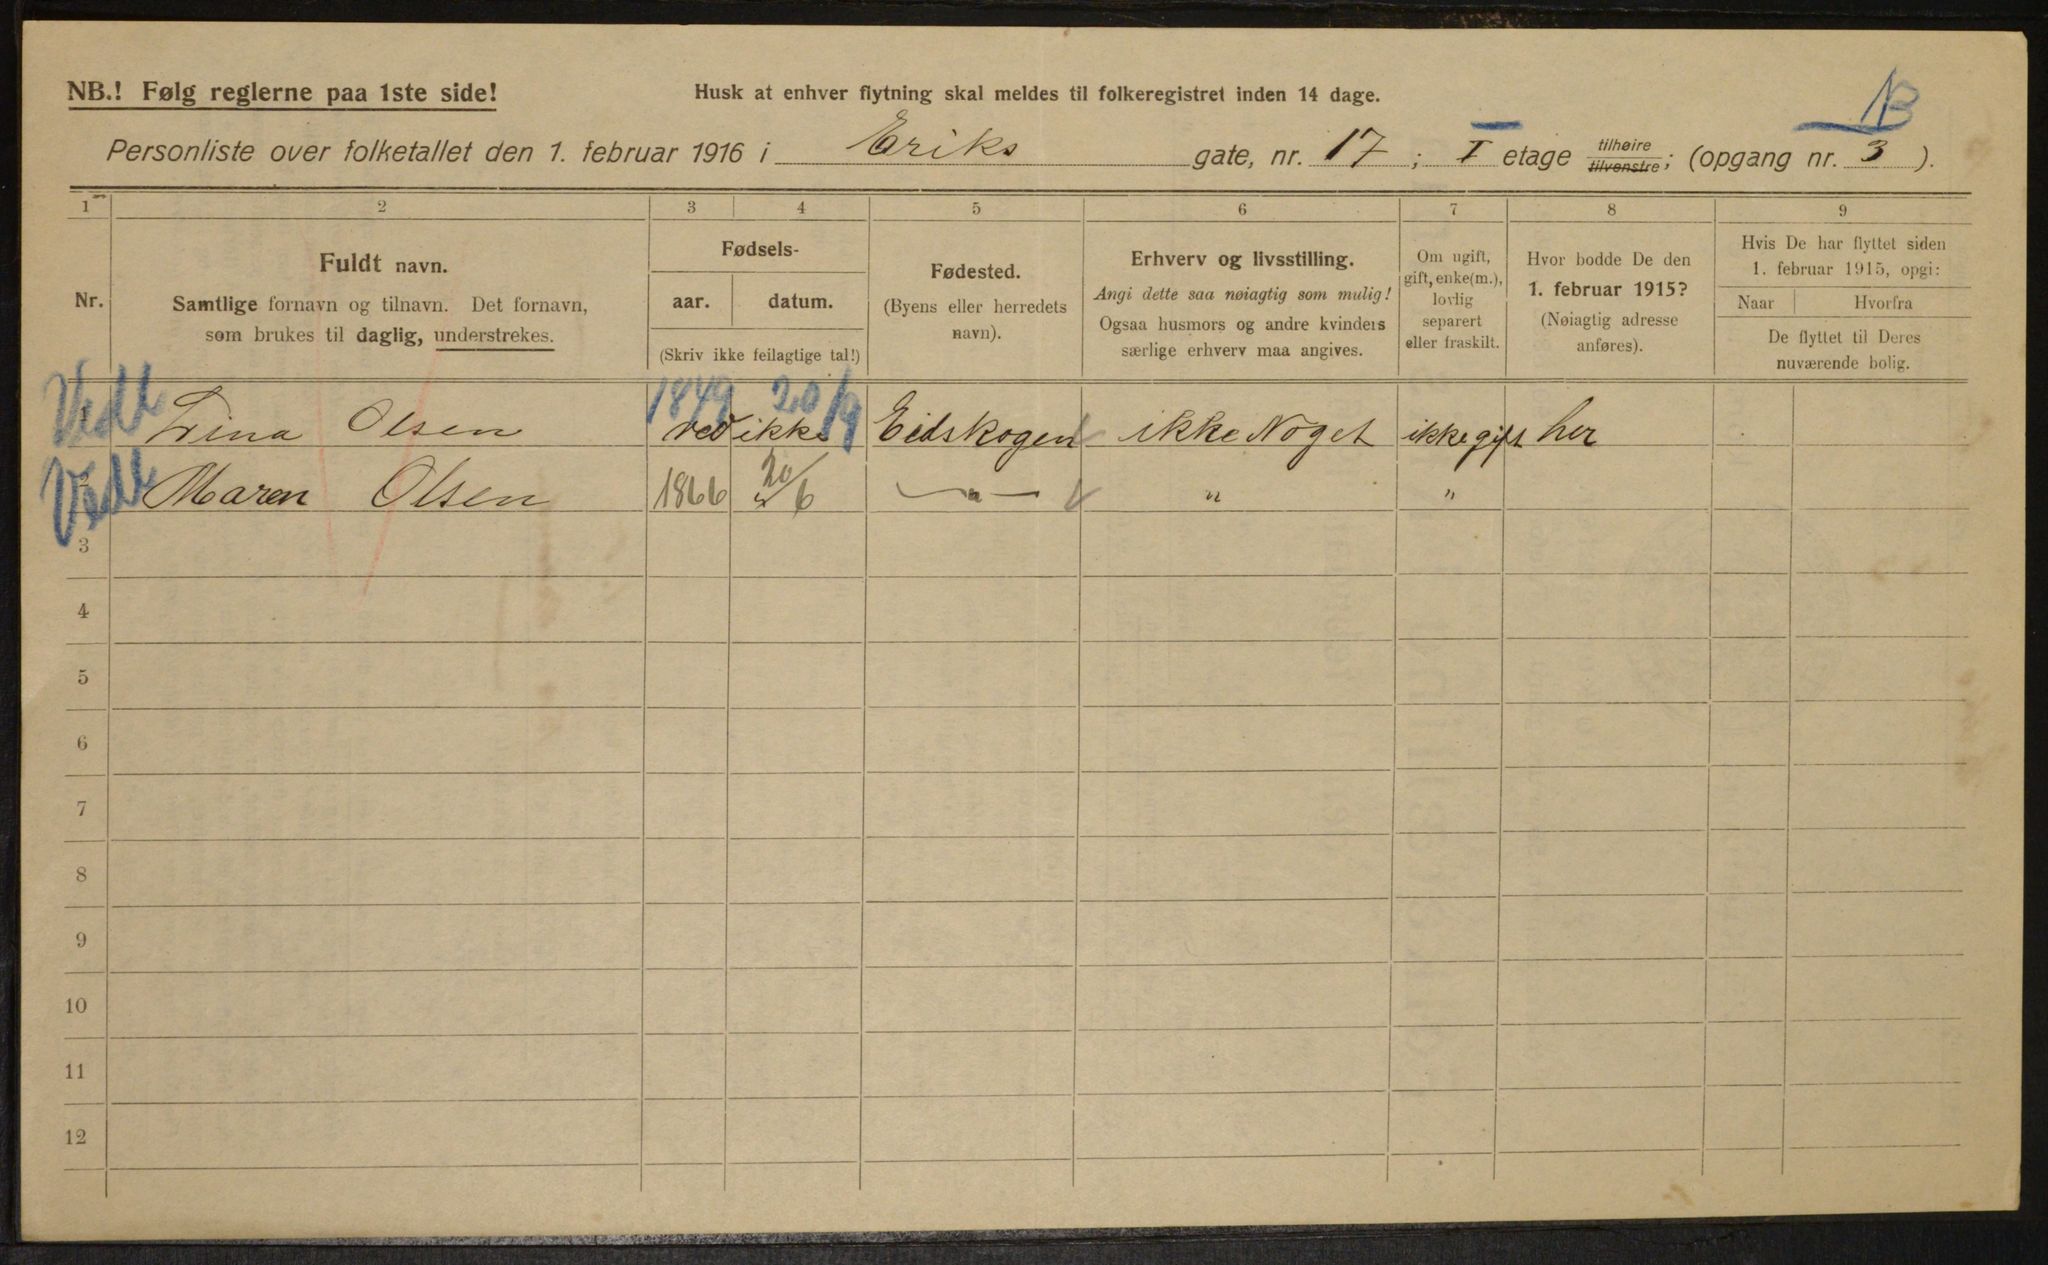 NB.! Følg reglerne paa 1ste side!
Husk at enhver flytning skal meldes til folkeregistret inden 14 dage.
Personliste over folketallet den 1. februar 1916 i Eriks gate, nr. 17 ; I etage tilhøire tilvenstre; (opgang nr. 3 ).
1 2 3 4 5 6 7 8 9
Nr.
Fuldt navn.
Samtlige fornavn og tilnavn. Det fornavn,
som brukes til daglig, understrekes.
Fødsels-
aar. datum.
(Skriv ikke feilagtige tal!)
Fødested.
(Byens eller herredets
navn).
Erhverv og livsstilling.
Angi dette saa nøiagtig som mulig!
Ogsaa husmors og andre kvinders
særlige erhverv maa angives.
Om ugift,
gift, enke(m.),
lovlig
separert
eller fraskilt.
Hvor bodde De den
1. februar 1915?
(Nøiagtig adresse
anføres).
Hvis De har flyttet siden
1. februar 1915, opgi:
Naar Hvorfra
De flyttet til Deres
nuværende bolig.
1849 20/9
1 Lina Olsen ved ikke Eidskogen ikke Noget ikke gift her
2 Maren Olsen 1866 20/6 — " — " "
3
4
5
6
7
8
9
10
11
12